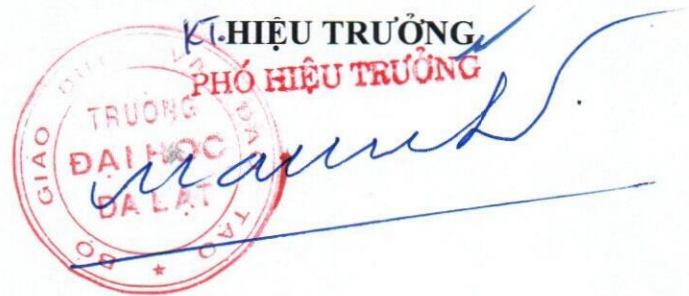 KT.HIỆU TRƯỞNG
PHÓ HIỆU TRƯỞNG
BỘ GIÁO DỤC VÀ ĐÀO TẠO
TRƯỜNG
ĐẠI HỌC
ĐÀ LẠT